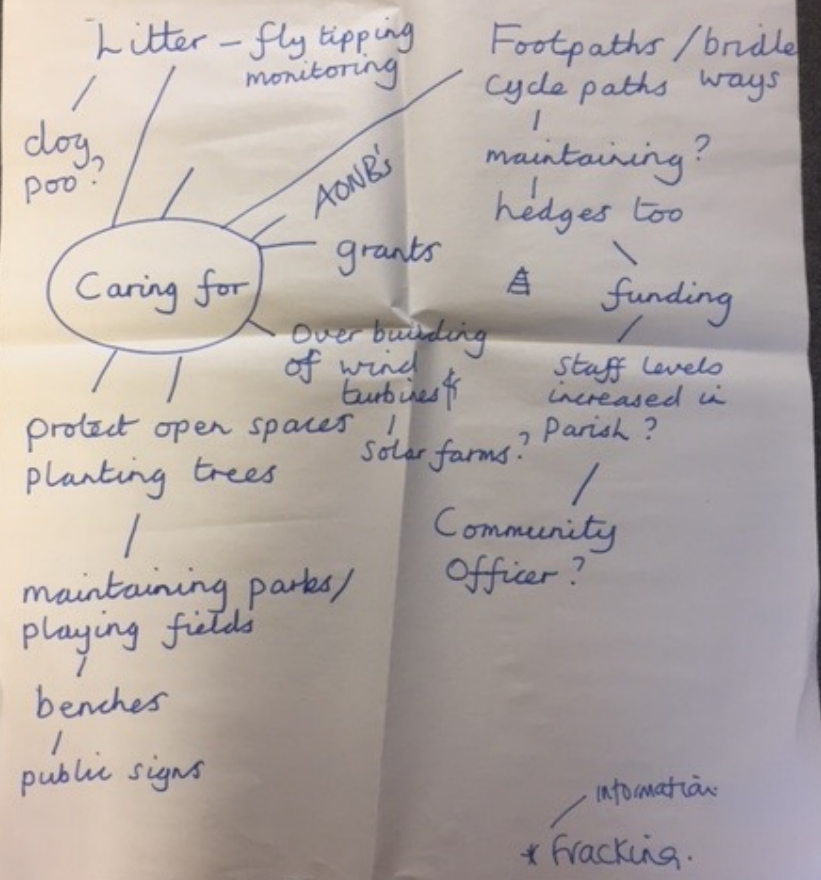 Litter - fly tipping
monitoring
dog
poo?
Footpaths / bridle
cycle paths ways
maintaining?
hedges too
funding
Staff levels
increased in
Parish?
Community
Officer?
AONB's
grants
Caring for
Over building
of wind
turbines &
Solar farms?
protect open spaces
planting trees
maintaining parks/
playing fields
benches
public signs
information
* Fracking.